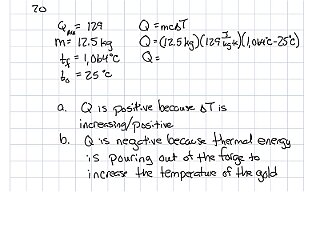 20
Q = 129 Q = mcΔT
m = 12.5 kg Q = (12.5 kg)(129 J/kg·K)(1,064°C - 25°C)
t_f = 1,064°C Q =
t_0 = 25°C
a. Q is positive because ΔT is
increasing/positive
b. Q is negative because thermal energy
is pouring out of the forge to
increase the temperature of the gold